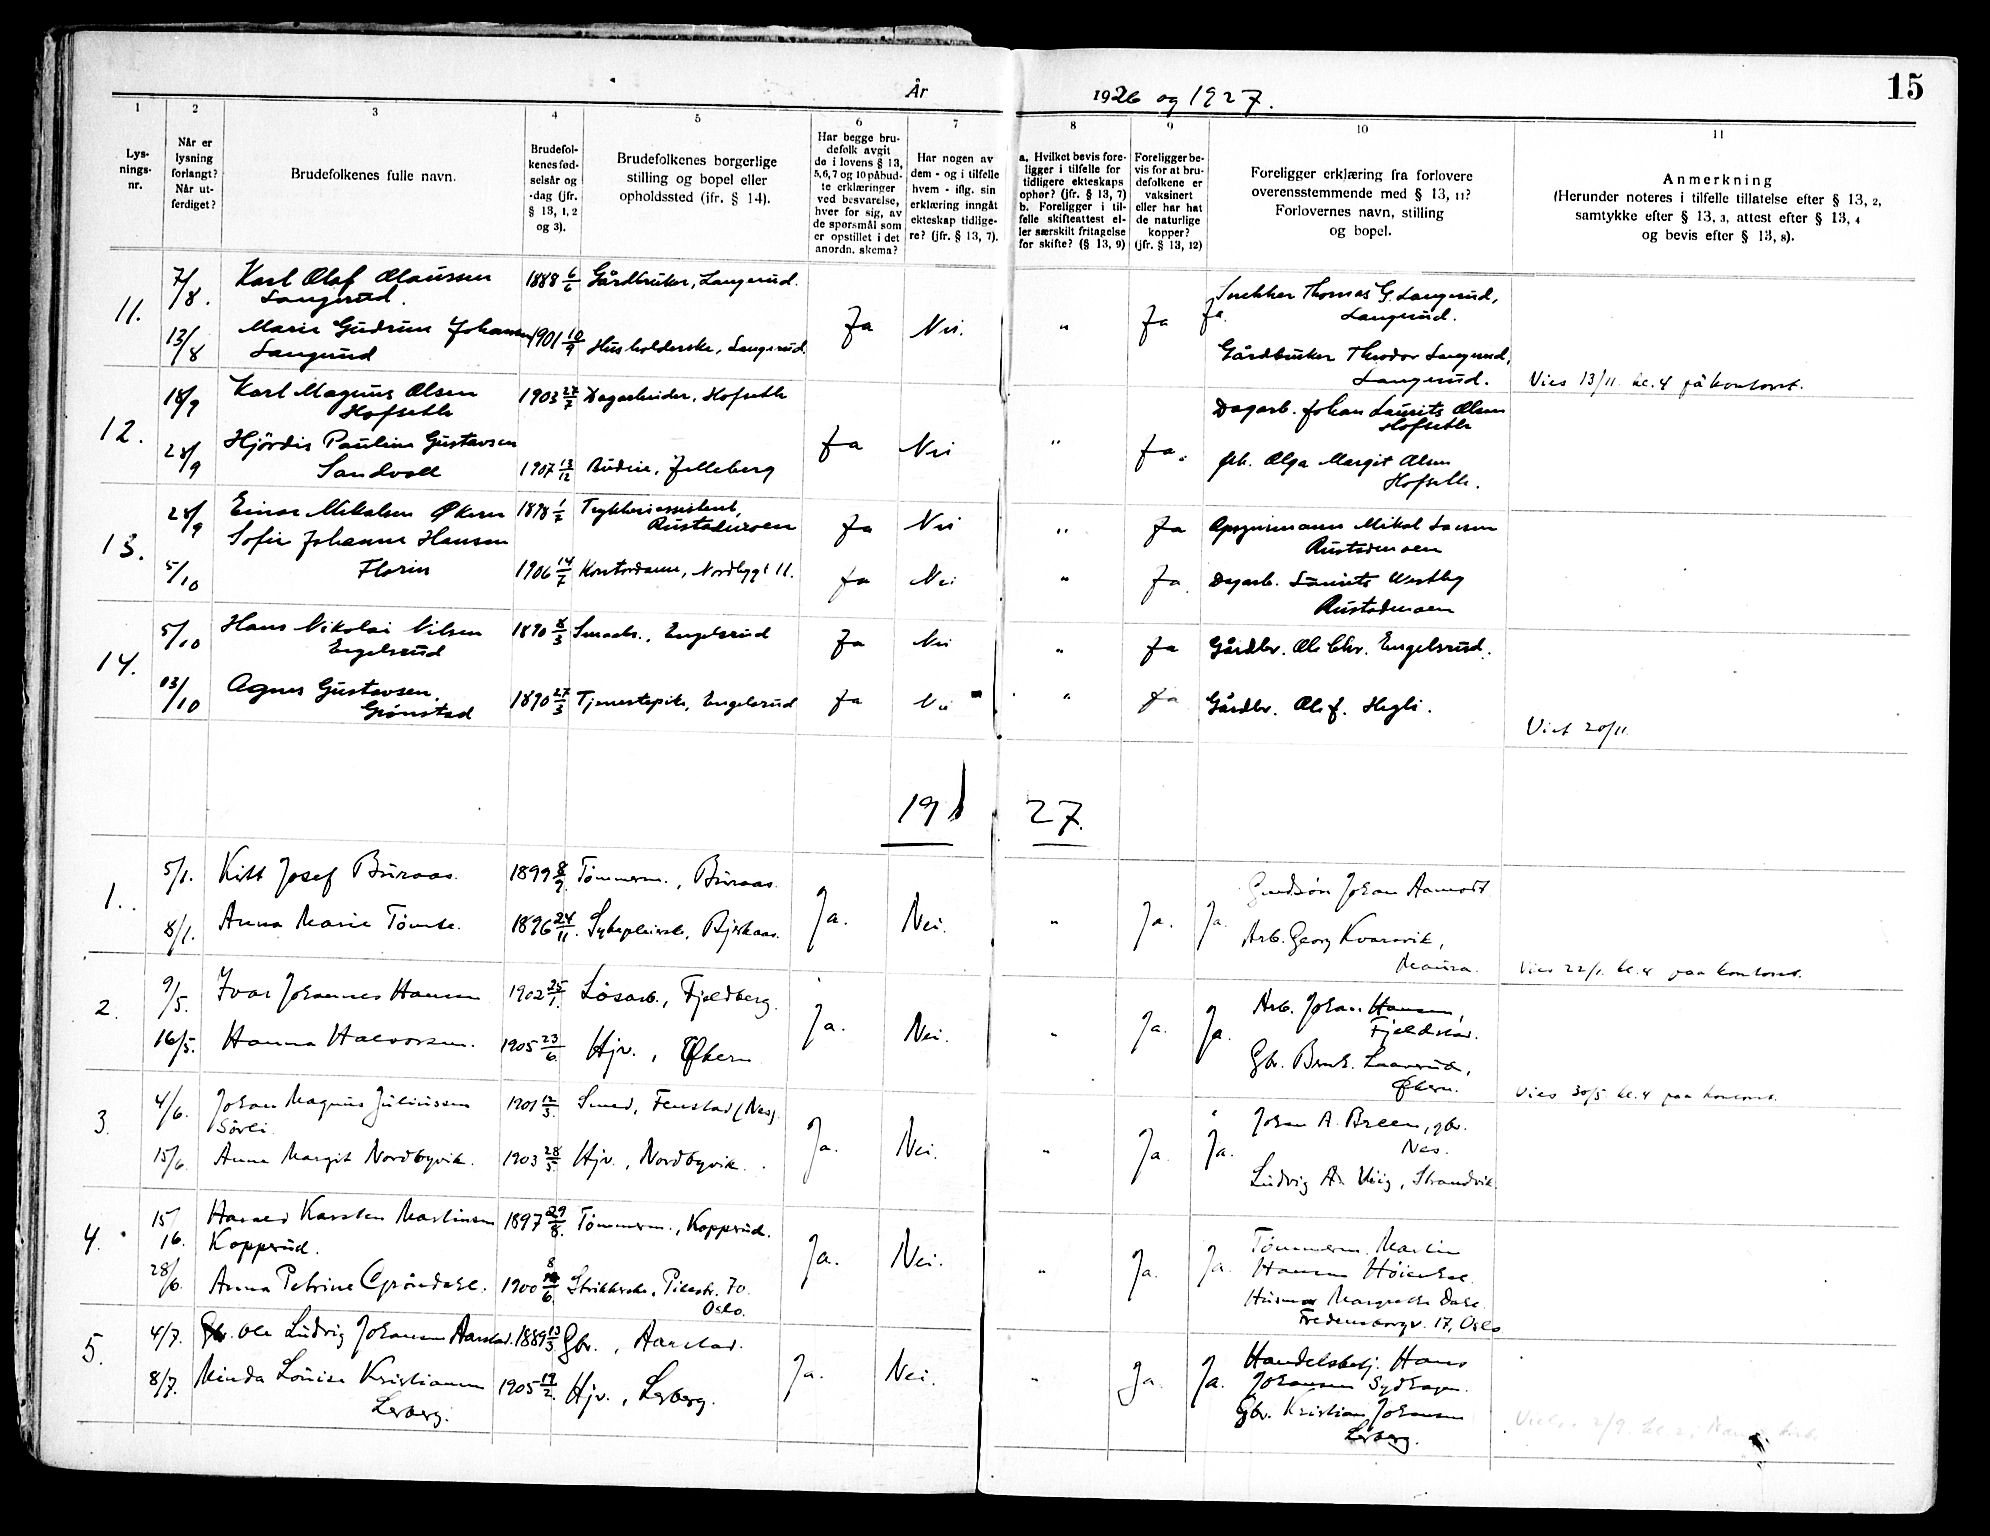 År 1926 og 1927.
15
1 2 3 4 5 6 7 8 9 10 11
Lys-
nings-
nr.
Når er
lysning
forlangt?
Når ut-
ferdiget?
Brudefolkenes fulle navn.
Brudefol-
kenes fød-
selsår og
-dag (jfr.
§ 13, 1, 2
og 3).
Brudefolkenes borgerlige
stilling og bopel eller
opholdssted (jfr. § 14).
Har begge bru-
defolk avgit
de i lovens § 13,
5, 6, 7 og 10 påbud-
te erklæringer
ved besvarelse,
hver for sig, av
de spørsmål som
er opstillet i det
anordn. skema?
Har nogen av
dem - og i tilfelle
hvem - iflg. sin
erklæring inngåt
ekteskap tidlige-
re? (jfr. § 13, 7).
a. Hvilket bevis fore-
ligger i tilfelle for
tidligere ekteskaps
ophør? (jfr. § 13, 7)
b. Foreligger i til-
felle skifteattest el-
ler særskilt fritagelse
for skifte? (§ 13, 9)
Foreligger be-
vis for at bru-
defolkene er
vaksinert
eller har hat
de naturlige
kopper?
(jfr. § 13, 12)
Foreligger erklæring fra forlovere
overensstemmende med § 13, 11?
Forlovernes navn, stilling
og bopel.
Anmerkning
(Herunder noteres i tilfelle tillatelse efter § 13, 2,
samtykke efter § 13, 3, attest efter § 13, 4
og bevis efter § 13, 8).
11. 7/8. Karl Olaf Olaussen 1888 6/6 Gårdbruker, Langerud. Snekker Thomas G. Langerud,
Langerud. Ja Nei. " Ja Ja. Langerud.
13/8 Marie Gudrun Johansen 1901 10/9 Husholderske, Langerud. Gårdbruker Theodor Langerud,
Langerud Langerud. Vies 13/11 kl. 4 på kontoret.
12. 18/9 Karl Magnus Olsen 1903 27/7 Dagarbeider, Hofseth Dagarb. Johan Laurits Olsen
Hofseth Ja Nei " Ja. Hofseth
28/9 Hjördis Pauline Gustavsen frk. Olga Margit Olsen
Sandvoll 1907 13/12 Budeie, Jelleberg Hofseth.
13. 28/9 Einar Mikalsen Økern 1898 1/7 Trykkeriassistent, Ja Nei " Ja Opsynsmann Mikal
Rustadmoen Rustadmoen
Sofie Johanne Hansen
5/10 Florin 1906 14/7 Kontordame, Nordbygt 11. Ja Nei " Ja. Dagarb. Laurits Westby
Rustadmoen
14. 5/10 Hans Nikolai Nilsen 1890 8/3 Engelsrud Ja Nei " Ja Gårdbr. Ole Chr. Engelsrud.
Engelsrud
13/10 Agnes Gustavsen. 1890 27/3 Tjenestepike, Engelsrud Ja Nei " Ja Gårdbr. Ole J. Hegli.
Grönstad Viet 20/11
19 27.
1. 5/1. Kitt Josef Buraas. 1899 8/9. Tömmerm., Buraas. Ja. Nei. " Ja. Ja. Johan Aamodt
8/1. Anna Marie Tömte. 1896 24/11. Sykepleierske, Bjerkaas. Arb. Georg Kvarsvik,
Maura. Vies 22/1. kl. 4 paa kontoret.
2. 9/5. Ivar Johannes Hansen 1902 25/1. Lösarb., Fjeldberg. Ja. Nei. " Ja. Ja. Arb. Johan Hansen,
Fjeldstad.
16/5. Hanna Halvorsen. 1905 23/6. Hjv., Økern Gbr. Bernt. Laarud,
Økern. Vies 30/5 kl. 4 paa kontoret.
3. 4/6. Johan Magnus Juliussen 1901 12/3. Smed, Fenstad (Nes). Ja. Nei. " Ja. Ja. Johan A. Breen, gbr.
Sörli. Nes.
15/6 Anna Margit Nordbyvik. 1903 28/5. Hjv., Nordbyvik. Ludvig Strandvik
4. 15/16. Harald Karsten Martinsen 1897 29/8. Tömmerm., Kopperud. Ja. Nei. " Ja. Ja. Tömmerm. Martin
Kopperud. Hansen
28/6. Anna Petrine Gröndahl. 1900 8/6. Strikkerske, Pilestr. 70. Margrethe Dahl.
Oslo. Fredensborgv. 17, Oslo
5. 4/7. Gbr. Ole Ludvig Johansen Aarstad. 1889 13/3 Gbr., Aarstad. Ja. Nei. " Ja. Ja. Handelsbetj. Hans
Johansen Sydhagen.
8/7. Minda Louise Kristiansen 1905 19/2. Hjv., Lerberg. Gbr. Kristian Johansen
Lerberg. Lerberg.